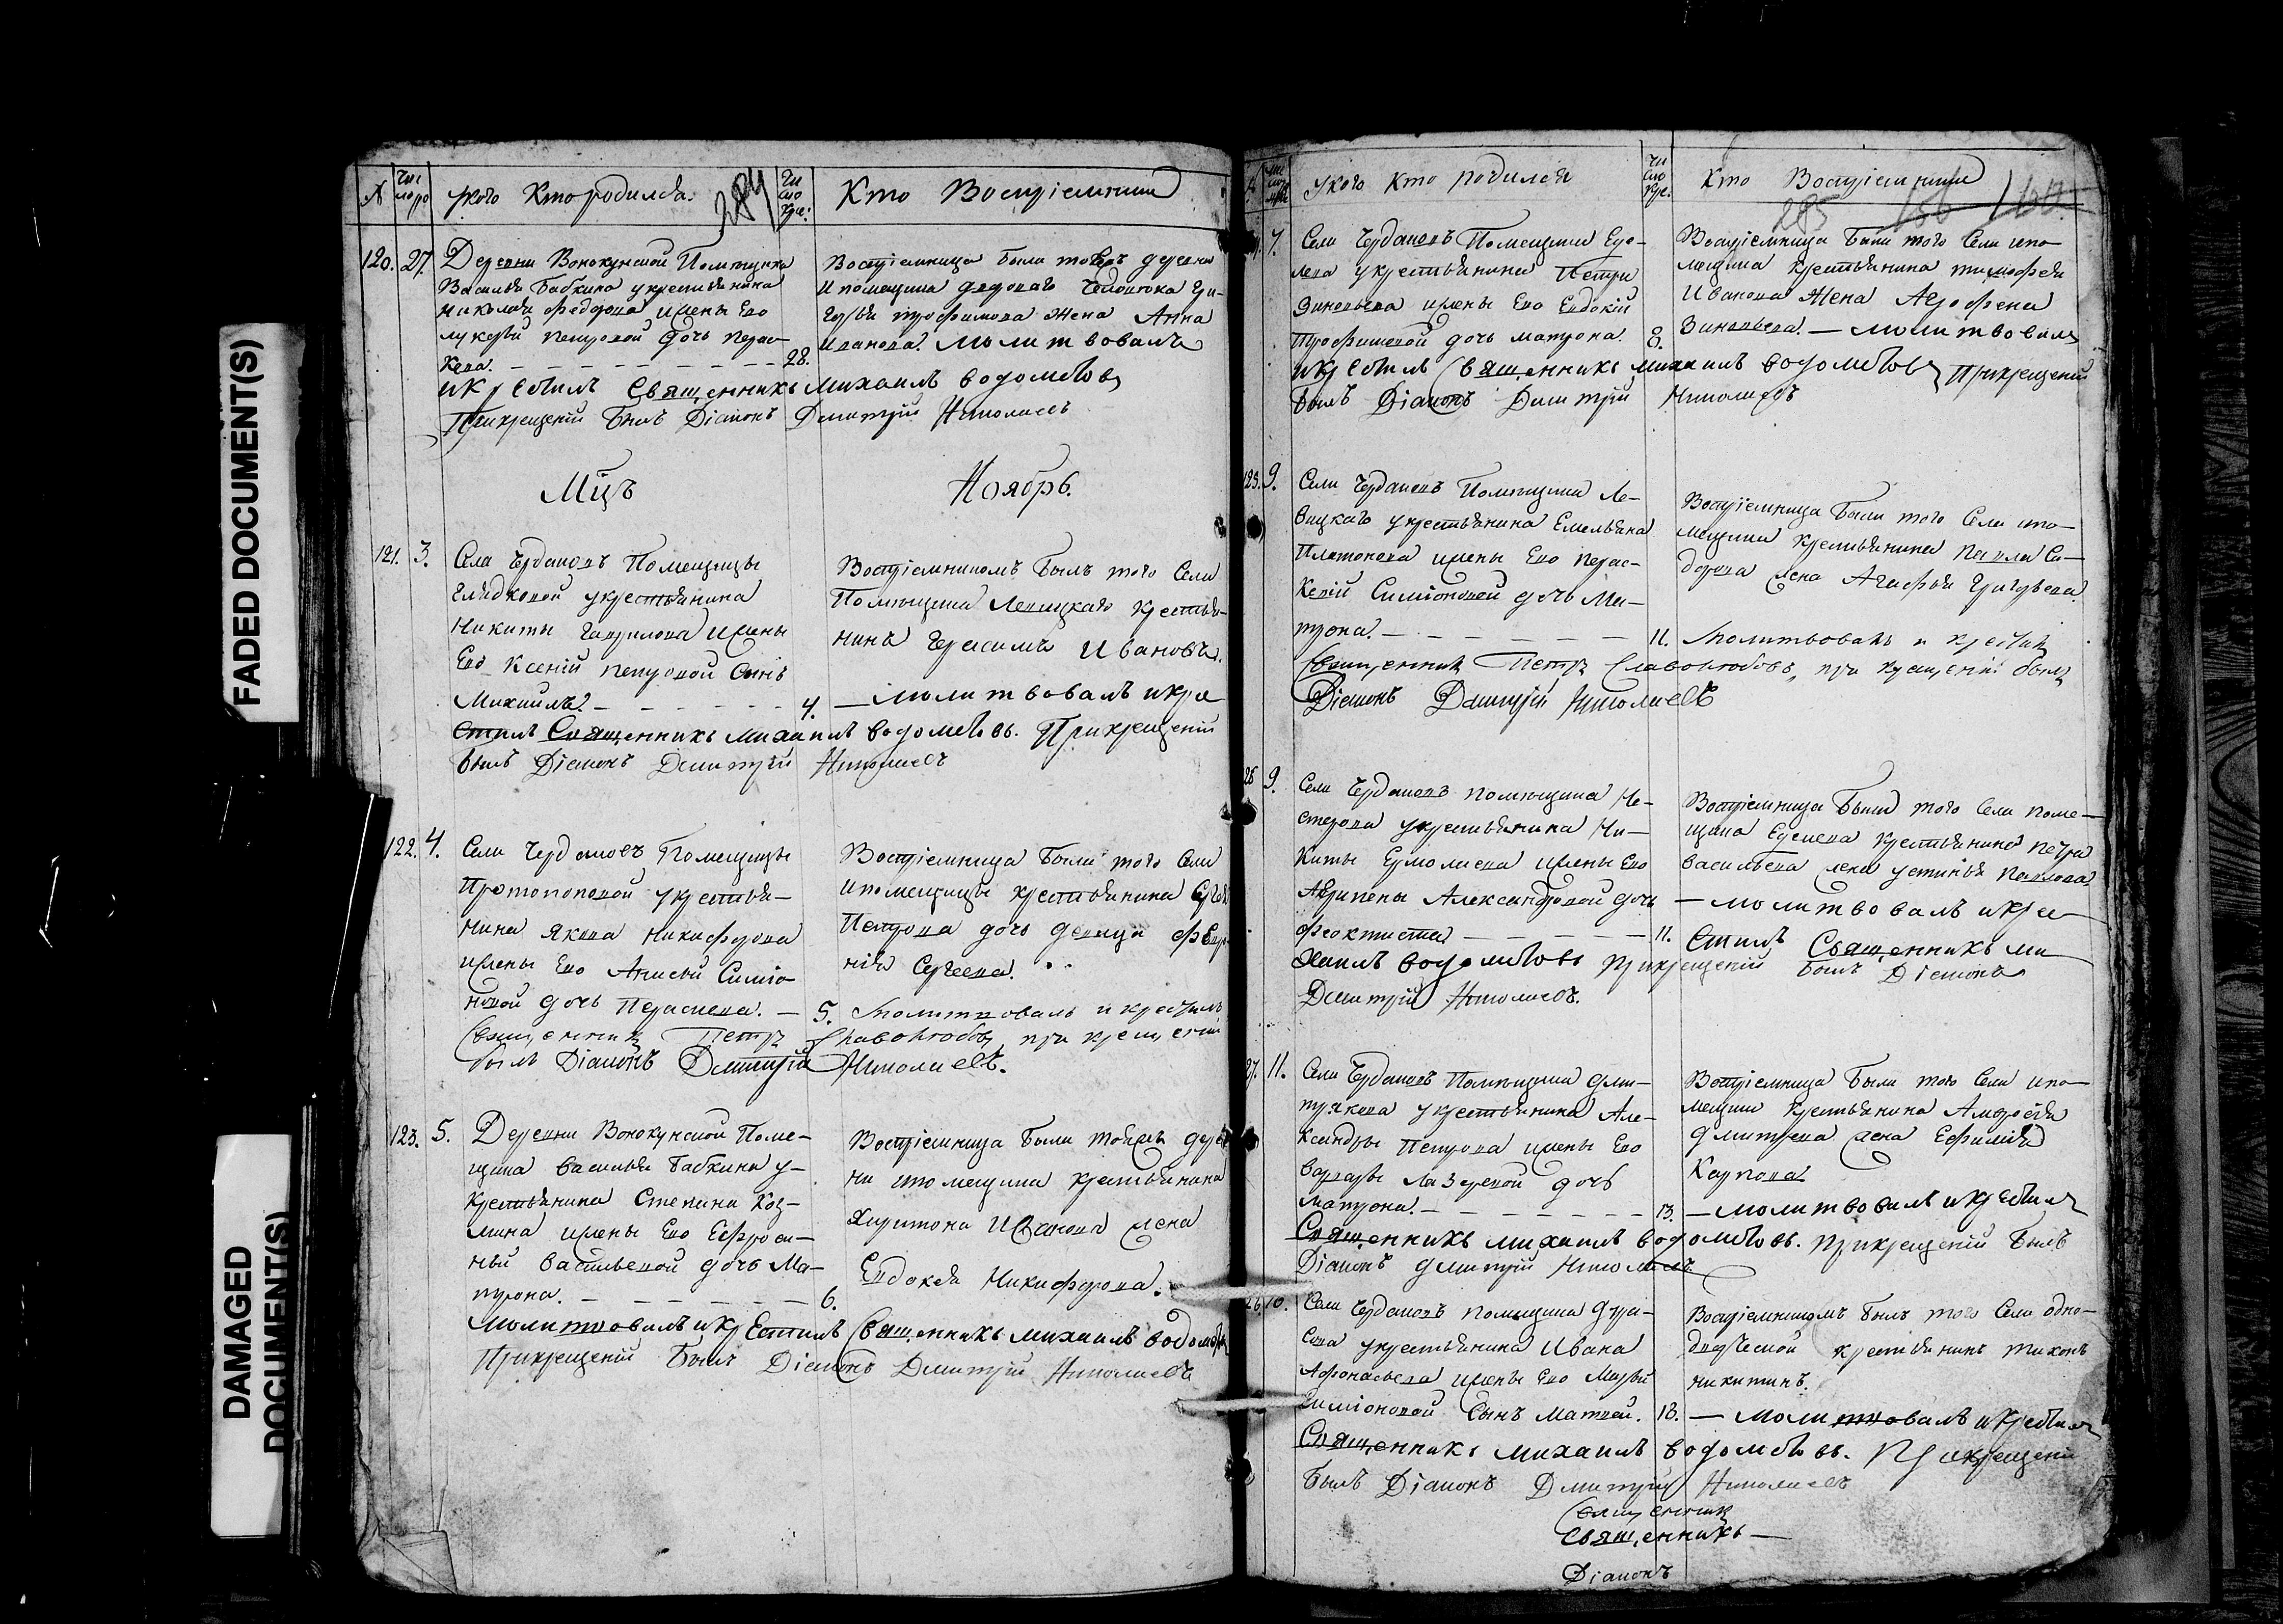 FADED DOCUMENT(S)
DAMAGED
DOCUMENT(S)
№ Чис ло ро у кого Кто родился. 284 Чи сло кре: Кто Воспріемники
120. 27. Деревни Вонокунской Помещика
Василья Бабкина у крестьянина
Николая Федорова и жены Ево
Лукерьи Петровой дочь Парас-
кева. — — — — — 28.
Воспріемница была тоеже деревни
и помещика дворового человека Гри-
горья Трофимова жена Анна
Иванова. Молитвовалъ
и крестилъ Священникъ Михаилъ Водолеевъ
При крещеніи былъ Діаконъ Дмитрій Николаевъ
Мцъ Ноябрь.
121. 3. Села Чердаковъ Помещицы
Гладковой у крестьянина
Никиты Гаврилова и жены
Ево Ксеніи Петровой Сынъ
Михаилъ. — — — — 4.
Воспріемникомъ былъ того Села
Помещика Левицкаго крестья-
нинъ Герасимъ Ивановъ.
— молитвовалъ и кре
стилъ Священникъ Михаилъ Водолеевъ. При крещеніи
былъ Діаконъ Дмитрій Николаевъ
122. 4. Села Чердаковъ Помещицы
Протопоповой у крестья-
нина Якова Никифорова
и жены Ево Анисьи Симіо-
новой дочь Параскева. — 5.
Воспріемница была того Села
и помещицы крестьянина Сергея
Петрова дочь девица
Сергеева.
Молитвовалъ и крестилъ
Священникъ Петръ Славолюбовъ, при крещеніи
былъ Діаконъ Дмитрій Николаевъ.
123. 5. Деревни Вонокунской Поме-
щика Василья Бабкина у
крестьянина Степана Коз-
мина и жены Ево Ефроси-
ньи Васильевой дочь Ма-
трона. — — — — — 6.
Воспріемница была тоежъ дерев
ни и помещика крестьянина
Харитона Иванова жена
Евдокея Никифорова.
Молитвовалъ и крестилъ Священникъ Михаилъ Водолеевъ
При крещеніи былъ Діаконъ Дмитрій Николаевъ
у кого кто родился Чи сло кре. Кто Воспріемники
285
7. Села Чердаковъ Помещика
у крестьянина Петра
Зиновьева и жены Ево Евдокіи
Трофимовой дочь Матрона. 8.
Воспріемница была того Села и по-
мещика крестьянина Тимофея
Иванова Жена Агрофена
Зиновьева. — молитвовалъ
и крестилъ Священникъ Михаилъ Водолеевъ При крещеніи
былъ Діаконъ Дмитрій Николаевъ
125. 9. Села Чердаковъ Помещика Ле-
вицкаго у крестьянина Емельяна
Платонова и жены Ево Парас-
кевіи Симіоновой дочь Ма-
трона. — — — — — 11.
Воспріемница была того Села и по-
мещика крестьянина Павла Си-
дорова жена Агафья Григорьева.
Молитвовалъ и крестилъ
Священникъ Петръ Славолюбовъ, при крещеніи былъ
Діаконъ Дмитрій Николаевъ
26 9. Села Чердаковъ помещика Не-
стерова у крестьянина Ни-
киты Ермолаева и жены Ево
Агрипены Александровой дочь
Феоктиста — — — — 11.
Воспріемница была того Села поме-
щика крестьянина Петра
Васильева жена Устинья Павлова
— молитвовалъ и кре
стилъ Священникъ Ми
хаилъ Водолеевъ При крещеніи былъ Діаконъ
Дмитрій Николаевъ.
27. 11. Села Чердаковъ Помещика Дми-
тракова у крестьянина Але-
ксандры Петрова и жены Ево
Варвары Лазаревой дочь
Матрона. — — — — — 13.
Воспріемница была того Села и по-
мещика крестьянина Амвросія
Дмитрева жена Ефимія
Карпова
— молитвовалъ и крестилъ
Священникъ Михаилъ Водолеевъ. При крещеніи былъ
Діаконъ Дмитрій Николаевъ
10. Села Чердаковъ помещика
у крестьянина Ивана
Афонасьева и жены Ево Марьи
Симіоновой Сынъ Матвей. 13.
Воспріемникомъ былъ того Села одно-
крестьянинъ Тихонъ
Никитинъ.
— молитвовалъ и крестилъ
Священникъ Михаилъ Водолеевъ. При крещеніи
былъ Діаконъ Дмитрій Николаевъ
Священникъ
Священникъ —
Діаконъ